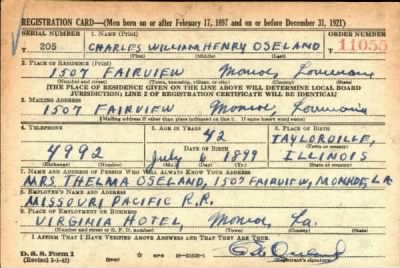 REGISTRATION CARD—(Men born on or after February 17, 1897 and on or before December 31, 1921)
SERIAL NUMBER 1. NAME (Print) ORDER NUMBER
T 205 CHARLES WILLIAM HENRY OSELAND 11055
(First) (Middle) (Last)
2. PLACE OF RESIDENCE (Print)
1507 FAIRVIEW Monroe, Louisiana
(Number and street) (Town, township, village, or city) (County) (State)
[THE PLACE OF RESIDENCE GIVEN ON THE LINE ABOVE WILL DETERMINE LOCAL BOARD
JURISDICTION; LINE 2 OF REGISTRATION CERTIFICATE WILL BE IDENTICAL]
3. MAILING ADDRESS
1507 FAIRVIEW Monroe, Louisiana
[Mailing address if other than place indicated on line 2. If same insert word same]
4. TELEPHONE 5. AGE IN YEARS 6. PLACE OF BIRTH
42 TAYLORVILLE,
DATE OF BIRTH (Town or county)
4992 July 6 1899 ILLINOIS
(Exchange) (Number) (Mo.) (Day) (Yr.) (State or country)
7. NAME AND ADDRESS OF PERSON WHO WILL ALWAYS KNOW YOUR ADDRESS
MRS THELMA OSELAND, 1507 FAIRVIEW, MONROE, LA
8. EMPLOYER'S NAME AND ADDRESS
MISSOURI PACIFIC R.R.
9. PLACE OF EMPLOYMENT OR BUSINESS
VIRGINIA HOTEL, Monroe, La.
(Number and street or R. F. D. number) (Town) (County) (State)
I AFFIRM THAT I HAVE VERIFIED ABOVE ANSWERS AND THAT THEY ARE TRUE.
D. S. S. Form 1
(Revised 1-1-42) (over)